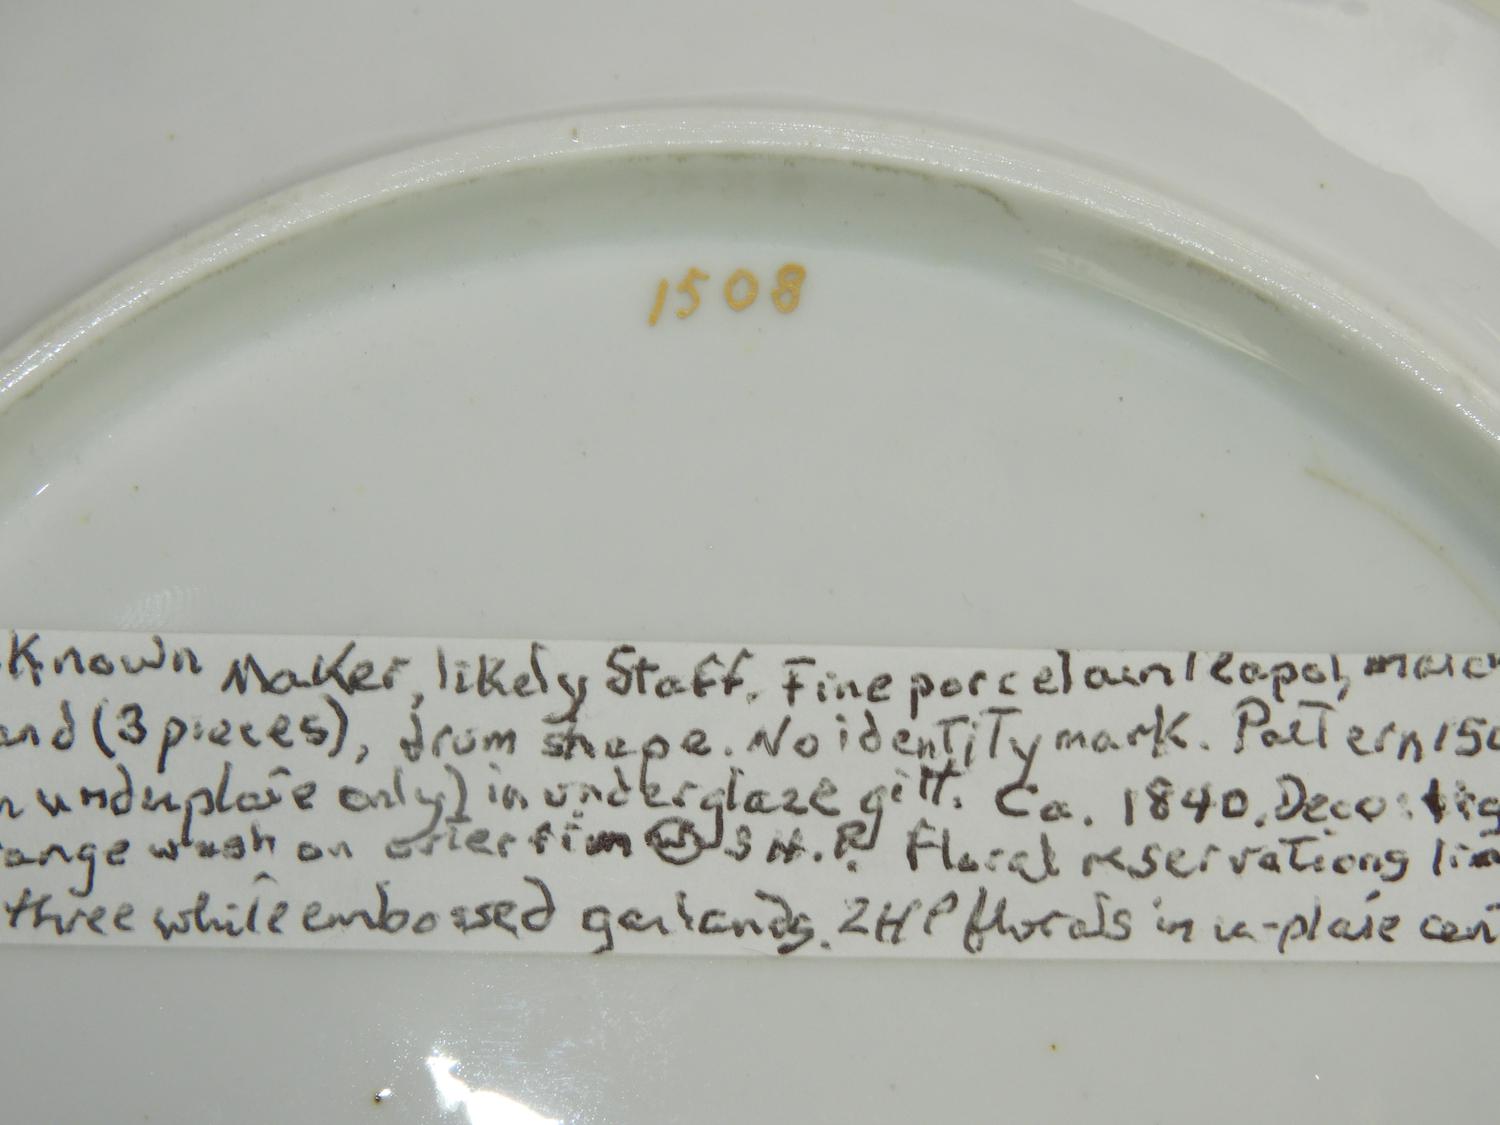 1508
Known Maker, likely Staff. Fine porcelain teapot, match
and (3 pieces), drum shape. No identity mark. Pattern 150
n underplate only) in underglaze gilt. Ca. 1840. Deco:
range wash on outer rim w/ 3 H.P. floral reservations
three white embossed garlands. 2HP florals in u-plate cent